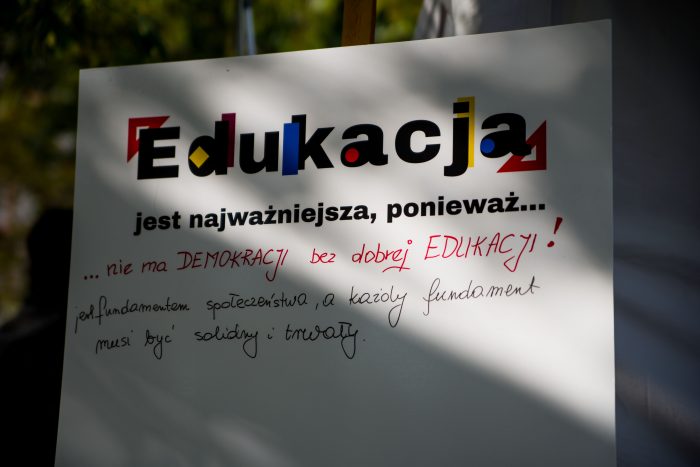 Edukacja
jest najważniejsza, ponieważ...
... nie ma DEMOKRACJI bez dobrej EDUKACJI!
jest fundamentem społeczeństwa, a każdy fundament
musi być solidny i trwały.